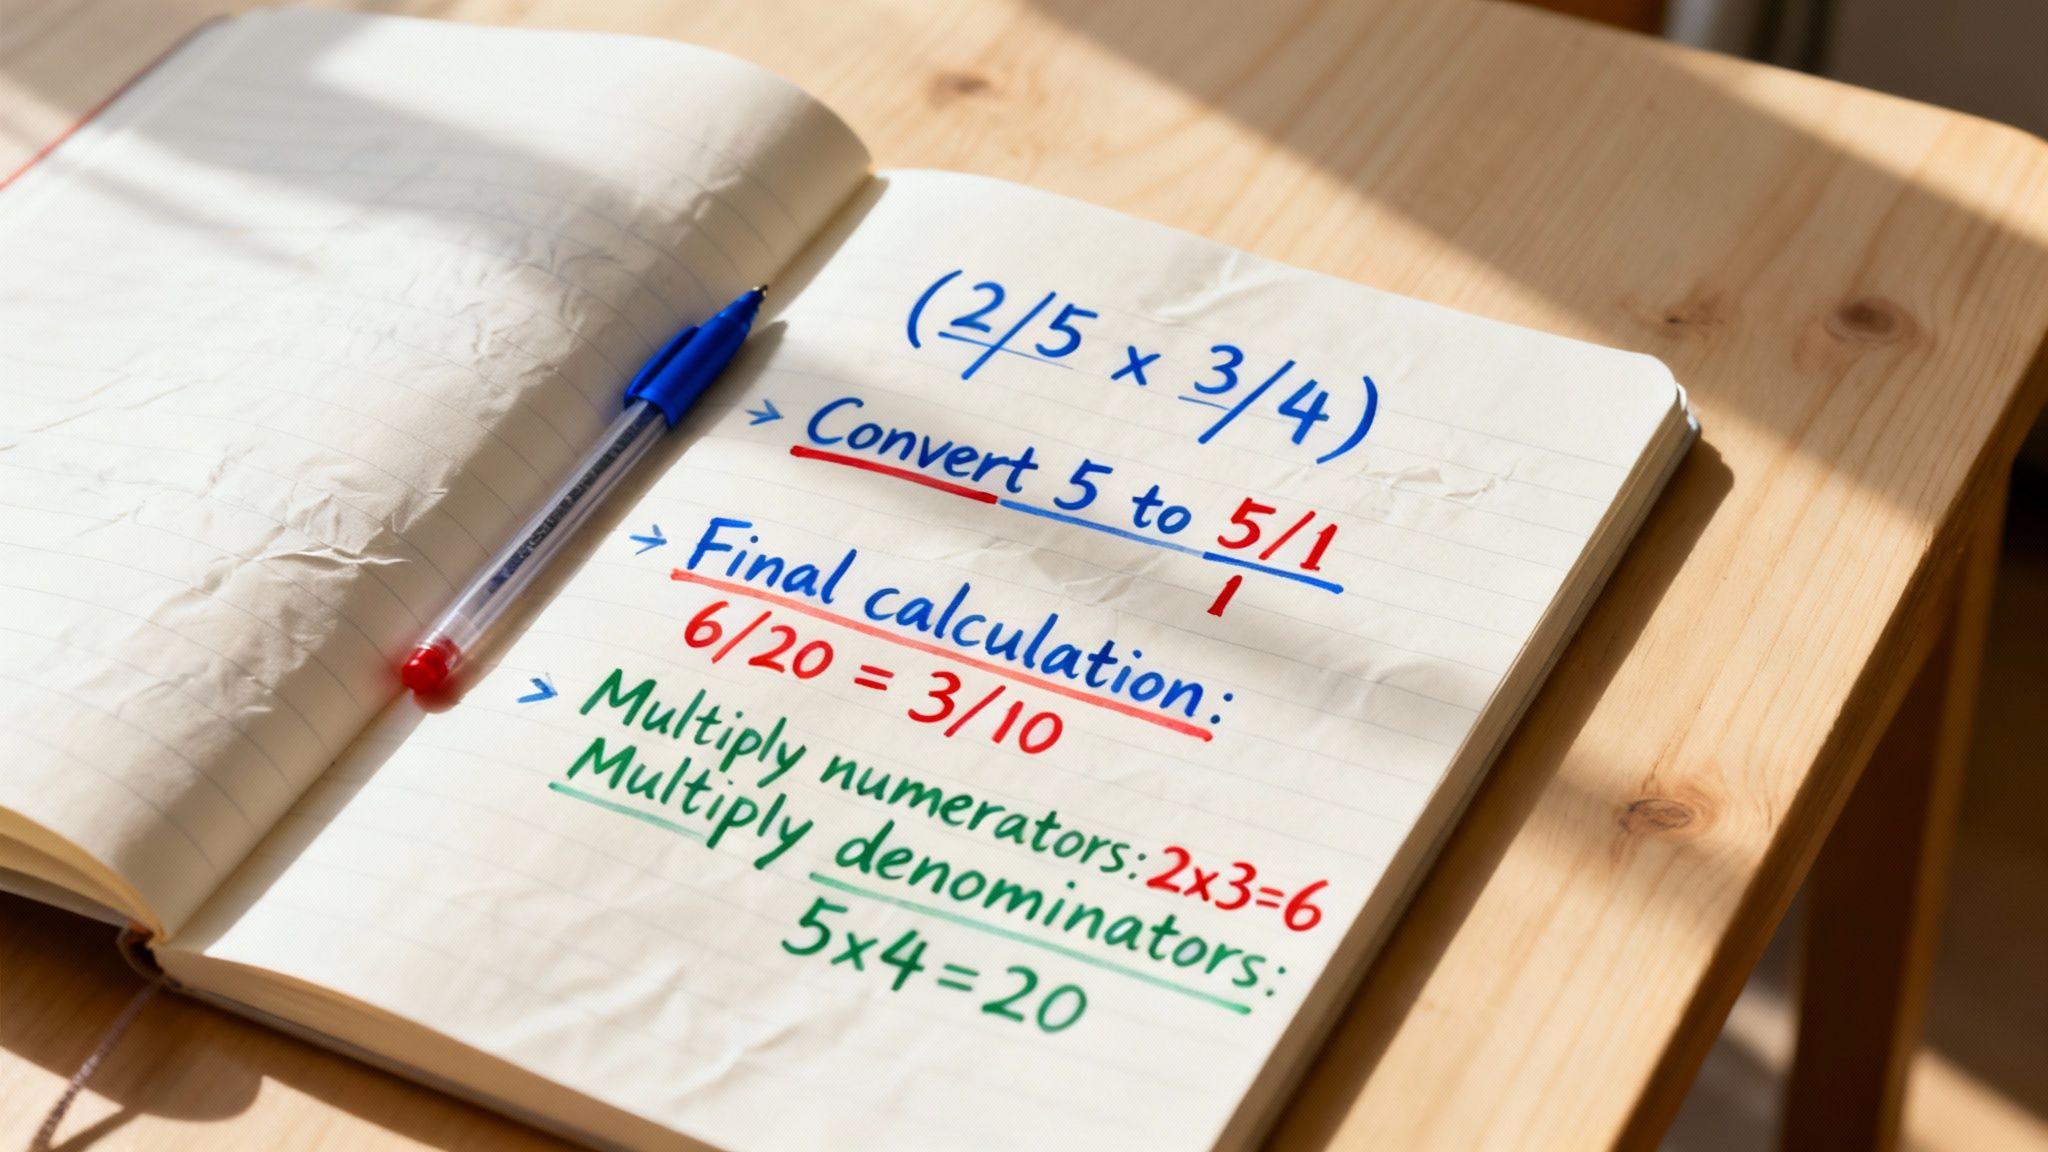 (2/5 x 3/4)
→ Convert 5 to 5/1
1
→ Final calculation:
6/20 = 3/10
→ Multiply numerators: 2x3=6
Multiply denominators:
5x4 = 20